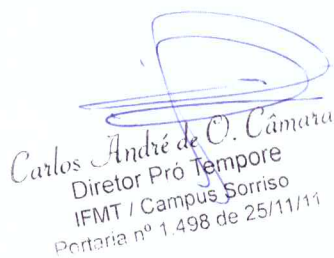 Carlos André de O. Câmara
Diretor Pró Tempore
IFMT / Campus Sorriso
Portaria nº 1.498 de 25/11/11